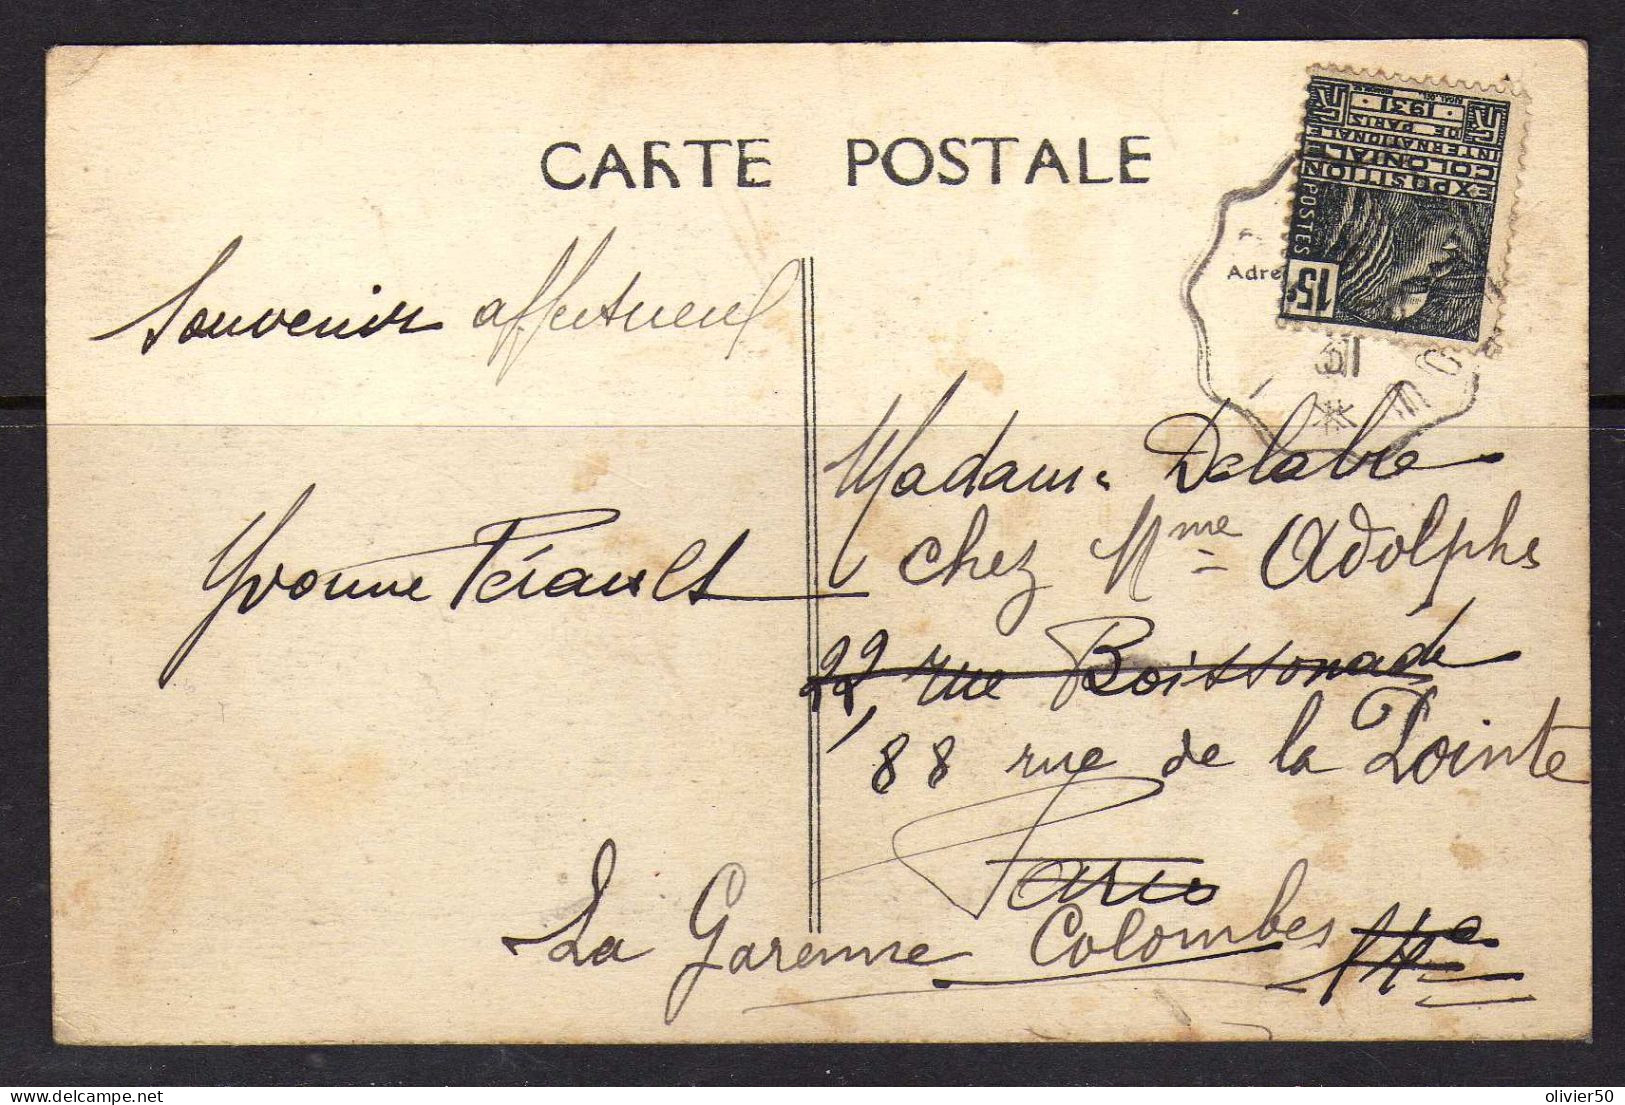 CARTE POSTALE
EXPOSITION
COLONIALE
INTERNATIONALE
DE PARIS
· 1931 ·
POSTES
15c
Adre
Souvenir affectueux
Yvonne Périault
Madame Delabre
chez Mme Adolphe
22, rue Boissonade
88 rue de la Pointe
Paris
La Garenne Colombes
olivier50